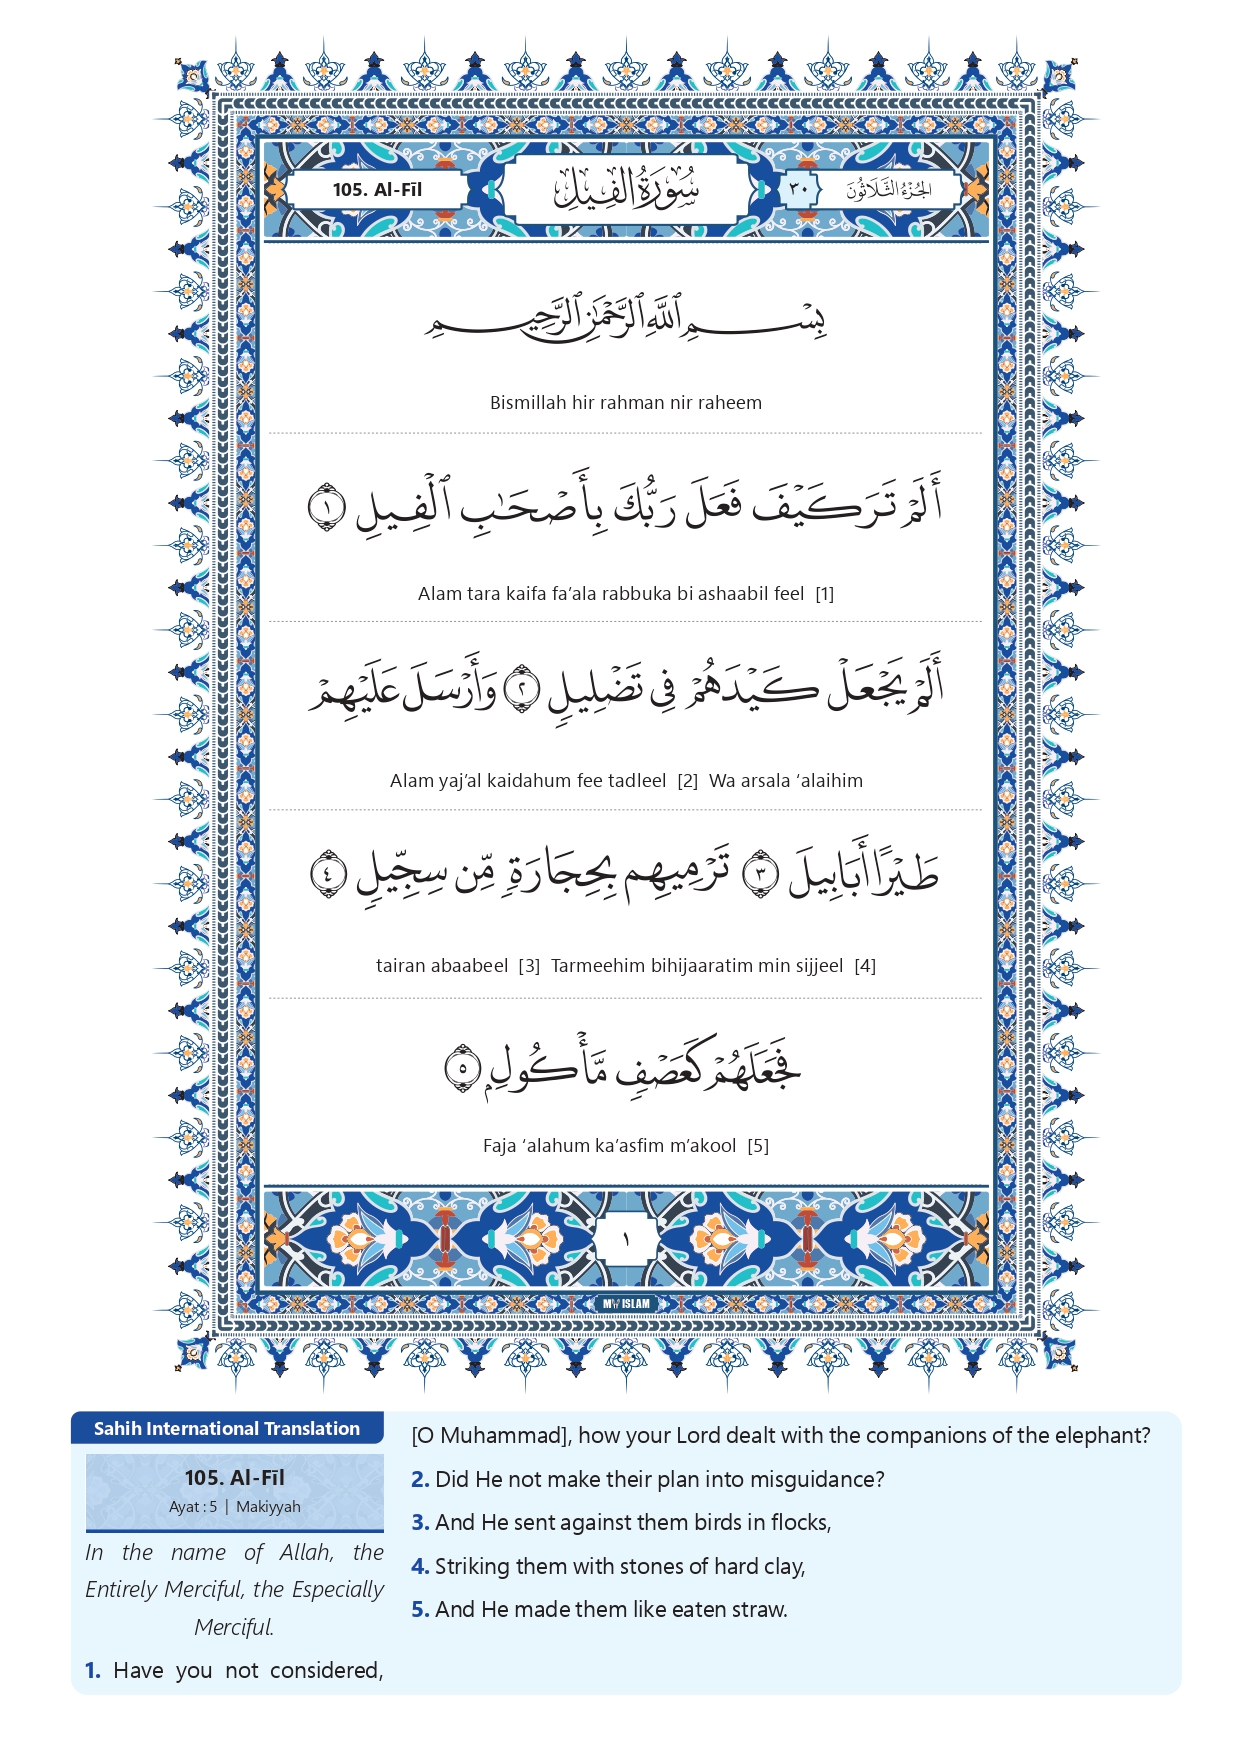 105. Al-Fīl
سُورَةُ الفِيلِ
٣٠
الجُزْءُ الثَّلَاثُونَ
بِسْمِ ٱللَّهِ ٱلرَّحْمَٰنِ ٱلرَّحِيمِ
Bismillah hir rahman nir raheem
أَلَمْ تَرَ كَيْفَ فَعَلَ رَبُّكَ بِأَصْحَٰبِ ٱلْفِيلِ ١
Alam tara kaifa fa’ala rabbuka bi ashaabil feel [1]
أَلَمْ يَجْعَلْ كَيْدَهُمْ فِى تَضْلِيلٍ ٢ وَأَرْسَلَ عَلَيْهِمْ
Alam yaj’al kaidahum fee tadleel [2] Wa arsala ‘alaihim
طَيْرًا أَبَابِيلَ ٣ تَرْمِيهِم بِحِجَارَةٍ مِّن سِجِّيلٍ ٤
tairan abaabeel [3] Tarmeehim bihijaaratim min sijjeel [4]
فَجَعَلَهُمْ كَعَصْفٍ مَّأْكُولٍۭ ٥
Faja ‘alahum ka’asfim m’akool [5]
١
MY ISLAM
Sahih International Translation
105. Al-Fīl
Ayat : 5 | Makiyyah
In the name of Allah, the
Entirely Merciful, the Especially
Merciful.
1. Have you not considered,
[O Muhammad], how your Lord dealt with the companions of the elephant?
2. Did He not make their plan into misguidance?
3. And He sent against them birds in flocks,
4. Striking them with stones of hard clay,
5. And He made them like eaten straw.